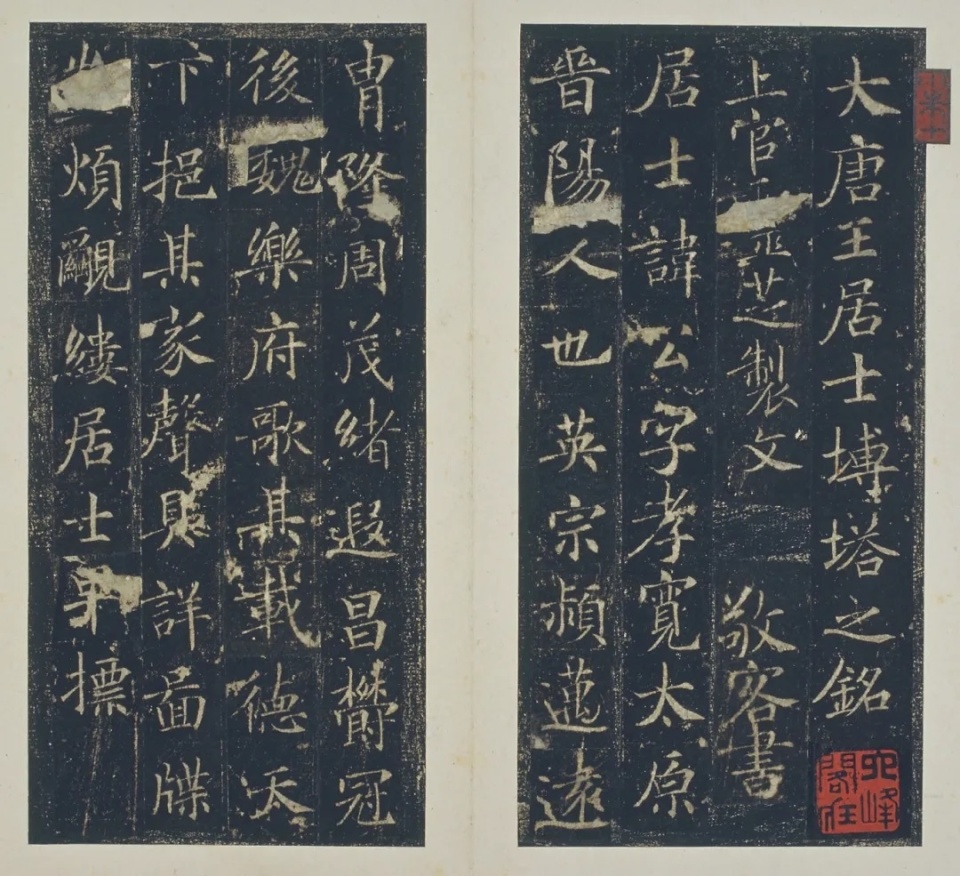 大唐王居士塼塔之銘
上官靈芝製文 敬客書
居士諱公字孝寬太原
晉陽人也英宗穎邁遠
冑隆周茂緒遐昌欝冠
後魏樂府歌其載德天
下挹其家聲具詳啚牒
煩覼縷居士早摽